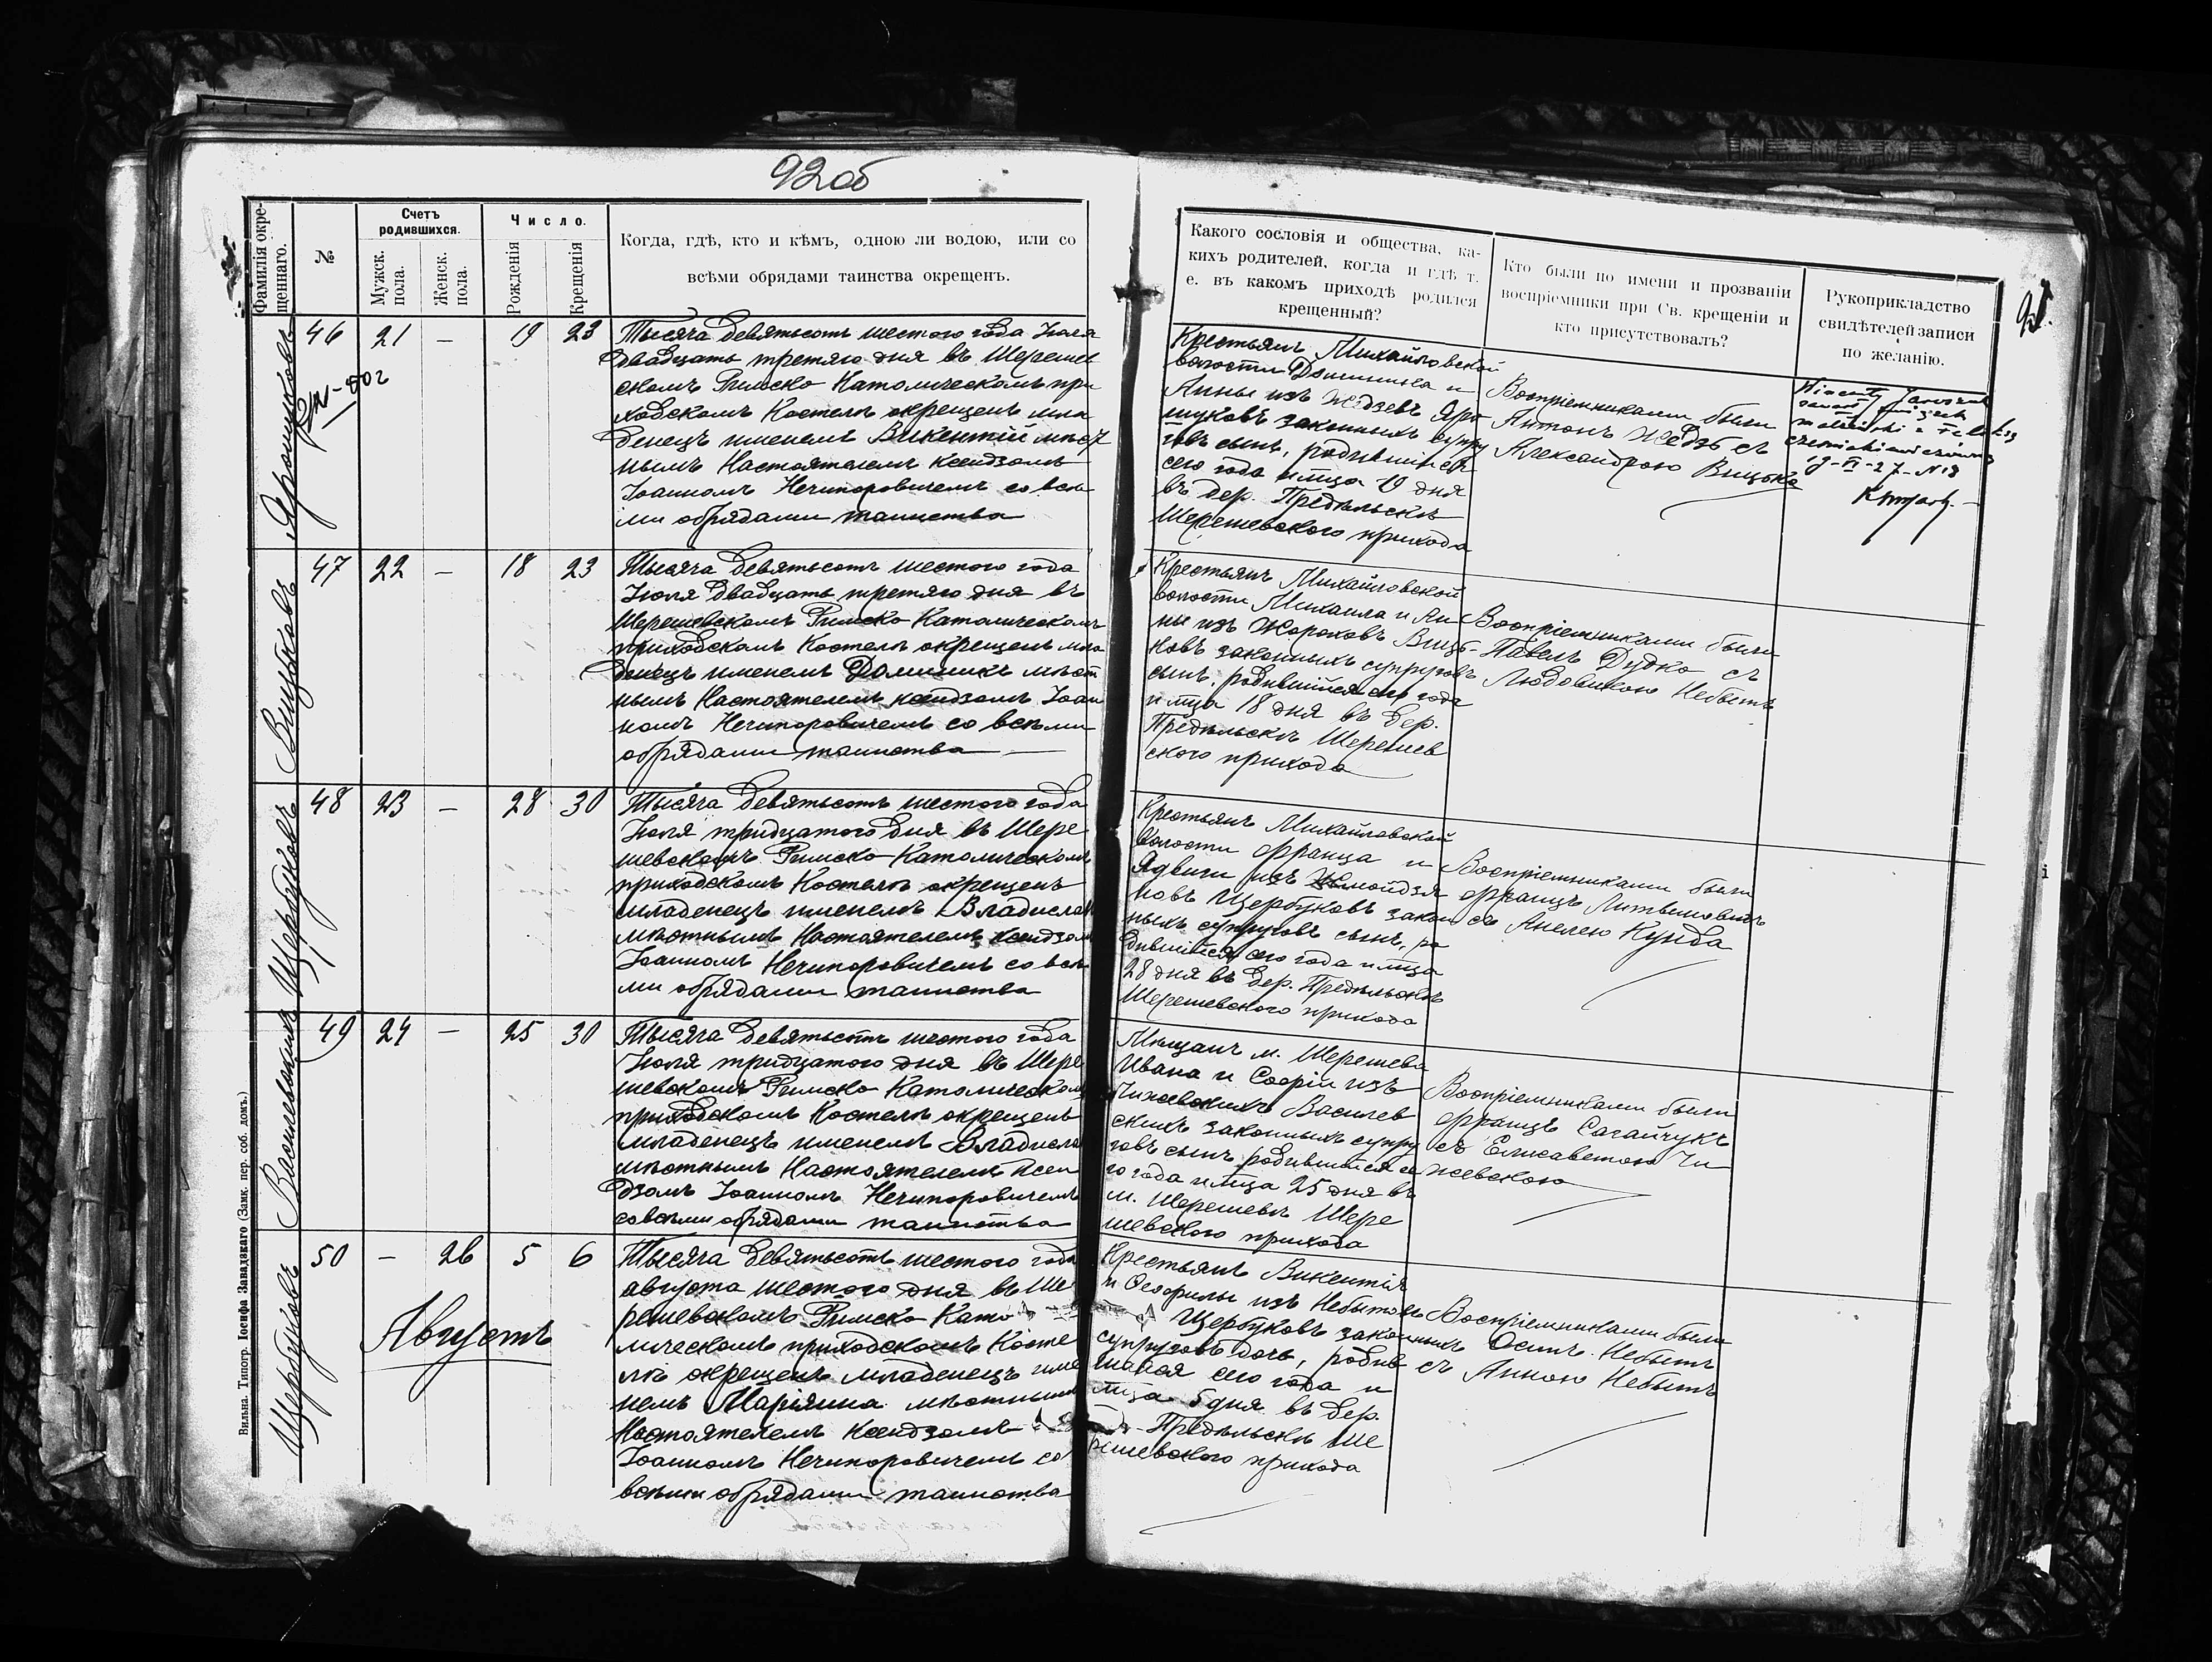 92об
Фамилія окре-
щеннаго.
№
Счетъ
родившихся.
Мужск.
пола.
Женск.
пола.
Число.
Рожденія
Крещенія
Когда, гдѣ, кто и кѣмъ, одною ли водою, или со
всѣми обрядами таинства окрещенъ.
Какого сословія и общества, ка-
кихъ родителей, когда и гдѣ т.
е. въ какомъ приходѣ родился
крещенный?
Кто были по имени и прозванію
воспріемники при Св. крещеніи и
кто присутствовалъ?
Рукоприкладство
свидѣтелей записи
по желанію.
Ярошуковъ
46 21 – 19 23
Тысяча девятьсотъ шестого года Іюля
двадцать третяго дня въ Шерешев
скомъ Римско Католическомъ при
ходскомъ Костелѣ окрещенъ мла
денецъ именемъ Викентій мѣст
нымъ Настоятелемъ ксендзомъ
Іоанномъ Нечипоровичемъ со всѣ
ми обрядами таинства
Крестьянъ Михайловской
волости Доминика и
Анны изъ Жедзевъ Яро
шуковъ законныхъ супру
говъ сынъ, родившійся
сего года и мца 19 дня
въ дер. Предѣльскѣ
Шерешевского прихода
Воспріемниками были
Антонъ Жедзь съ
Александрою Вицько
19-VI-27- N18
Вицьковъ
47 22 – 18 23
Тысяча девятьсотъ шестого года
Іюля двадцать третяго дня въ
Шерешевскомъ Римско-Католическомъ
приходскомъ Костелѣ окрещенъ мла
денецъ именемъ Доминикъ мѣст
нымъ Настоятелемъ ксендзомъ Іоан
номъ Нечипоровичемъ со всѣми
обрядами таинства
Крестьянъ Михайловской
волости Михаила и Ан
ны изъ Жороховъ Виць-
ковъ законныхъ супруговъ
сынъ, родившійся сего года
и мца 18 дня въ дер.
Предѣльскѣ Шерешев
ского прихода
Воспріемниками были
Павелъ Дудко съ
Людовикою Небытъ
Щербуковъ
48 23 – 28 30
Тысяча девятьсотъ шестого года
Іюля тридцатого дня въ Шере
шевскомъ Римско-Католическомъ
приходскомъ Костелѣ окрещенъ
младенецъ именемъ Владиславъ
мѣстнымъ Настоятелемъ ксендзомъ
Іоанномъ Нечипоровичемъ со всѣ
ми обрядами таинства
Крестьянъ Михайловской
волости Франца и
Ядвиги изъ Жмойдзя
ковъ Щербуковъ закон
ныхъ супруговъ сынъ, ро
дившійся сего года и мца
28 дня въ дер. Предѣльскѣ
Шерешевского прихода
Воспріемниками были
Францъ Литвиновичъ
съ Анелею Кунда
Василевскихъ
49 24 – 25 30
Тысяча девятьсотъ шестого года
Іюля тридцатого дня въ Шере
шевскомъ Римско Католическомъ
приходскомъ Костелѣ окрещенъ
младенецъ именемъ Владиславъ
мѣстнымъ Настоятелемъ ксен
дзомъ Іоанномъ Нечипоровичемъ
со всѣми обрядами таинства
Мѣщанъ м. Шерешева
Ивана и Софіи изъ
Чижевскихъ Василев
скихъ законныхъ супру
говъ сынъ родившійся се
го года и мца 25 дня въ
м. Шерешевѣ Шере
шевского прихода
Воспріемниками были
Францъ Сагайчукъ
съ Елисаветою Чи
жевскою
Щербуковъ
50 – 26 5 6
Августъ
Тысяча девятьсотъ шестого года
августа шестого дня въ Ше
решевскомъ Римско Като
лическомъ приходскомъ Косте
лѣ окрещенъ младенецъ име
немъ Маріянна мѣстнымъ
Настоятелемъ ксендзомъ
Іоанномъ Нечипоровичемъ со
всѣми обрядами таинства
Крестьянъ Викентія
и Ѳеофилы изъ Небытовъ
Щербуковъ законныхъ
супруговъ дочь, родив
шаяся сего года и
мца 5 дня въ дер.
Предѣльскѣ Ше
решевского прихода
Воспріемниками были
Осипъ Небытъ
съ Анною Небытъ
Вильна. Типогр. Іосифа Завадзкаго (Замк. пер. соб. домъ.)